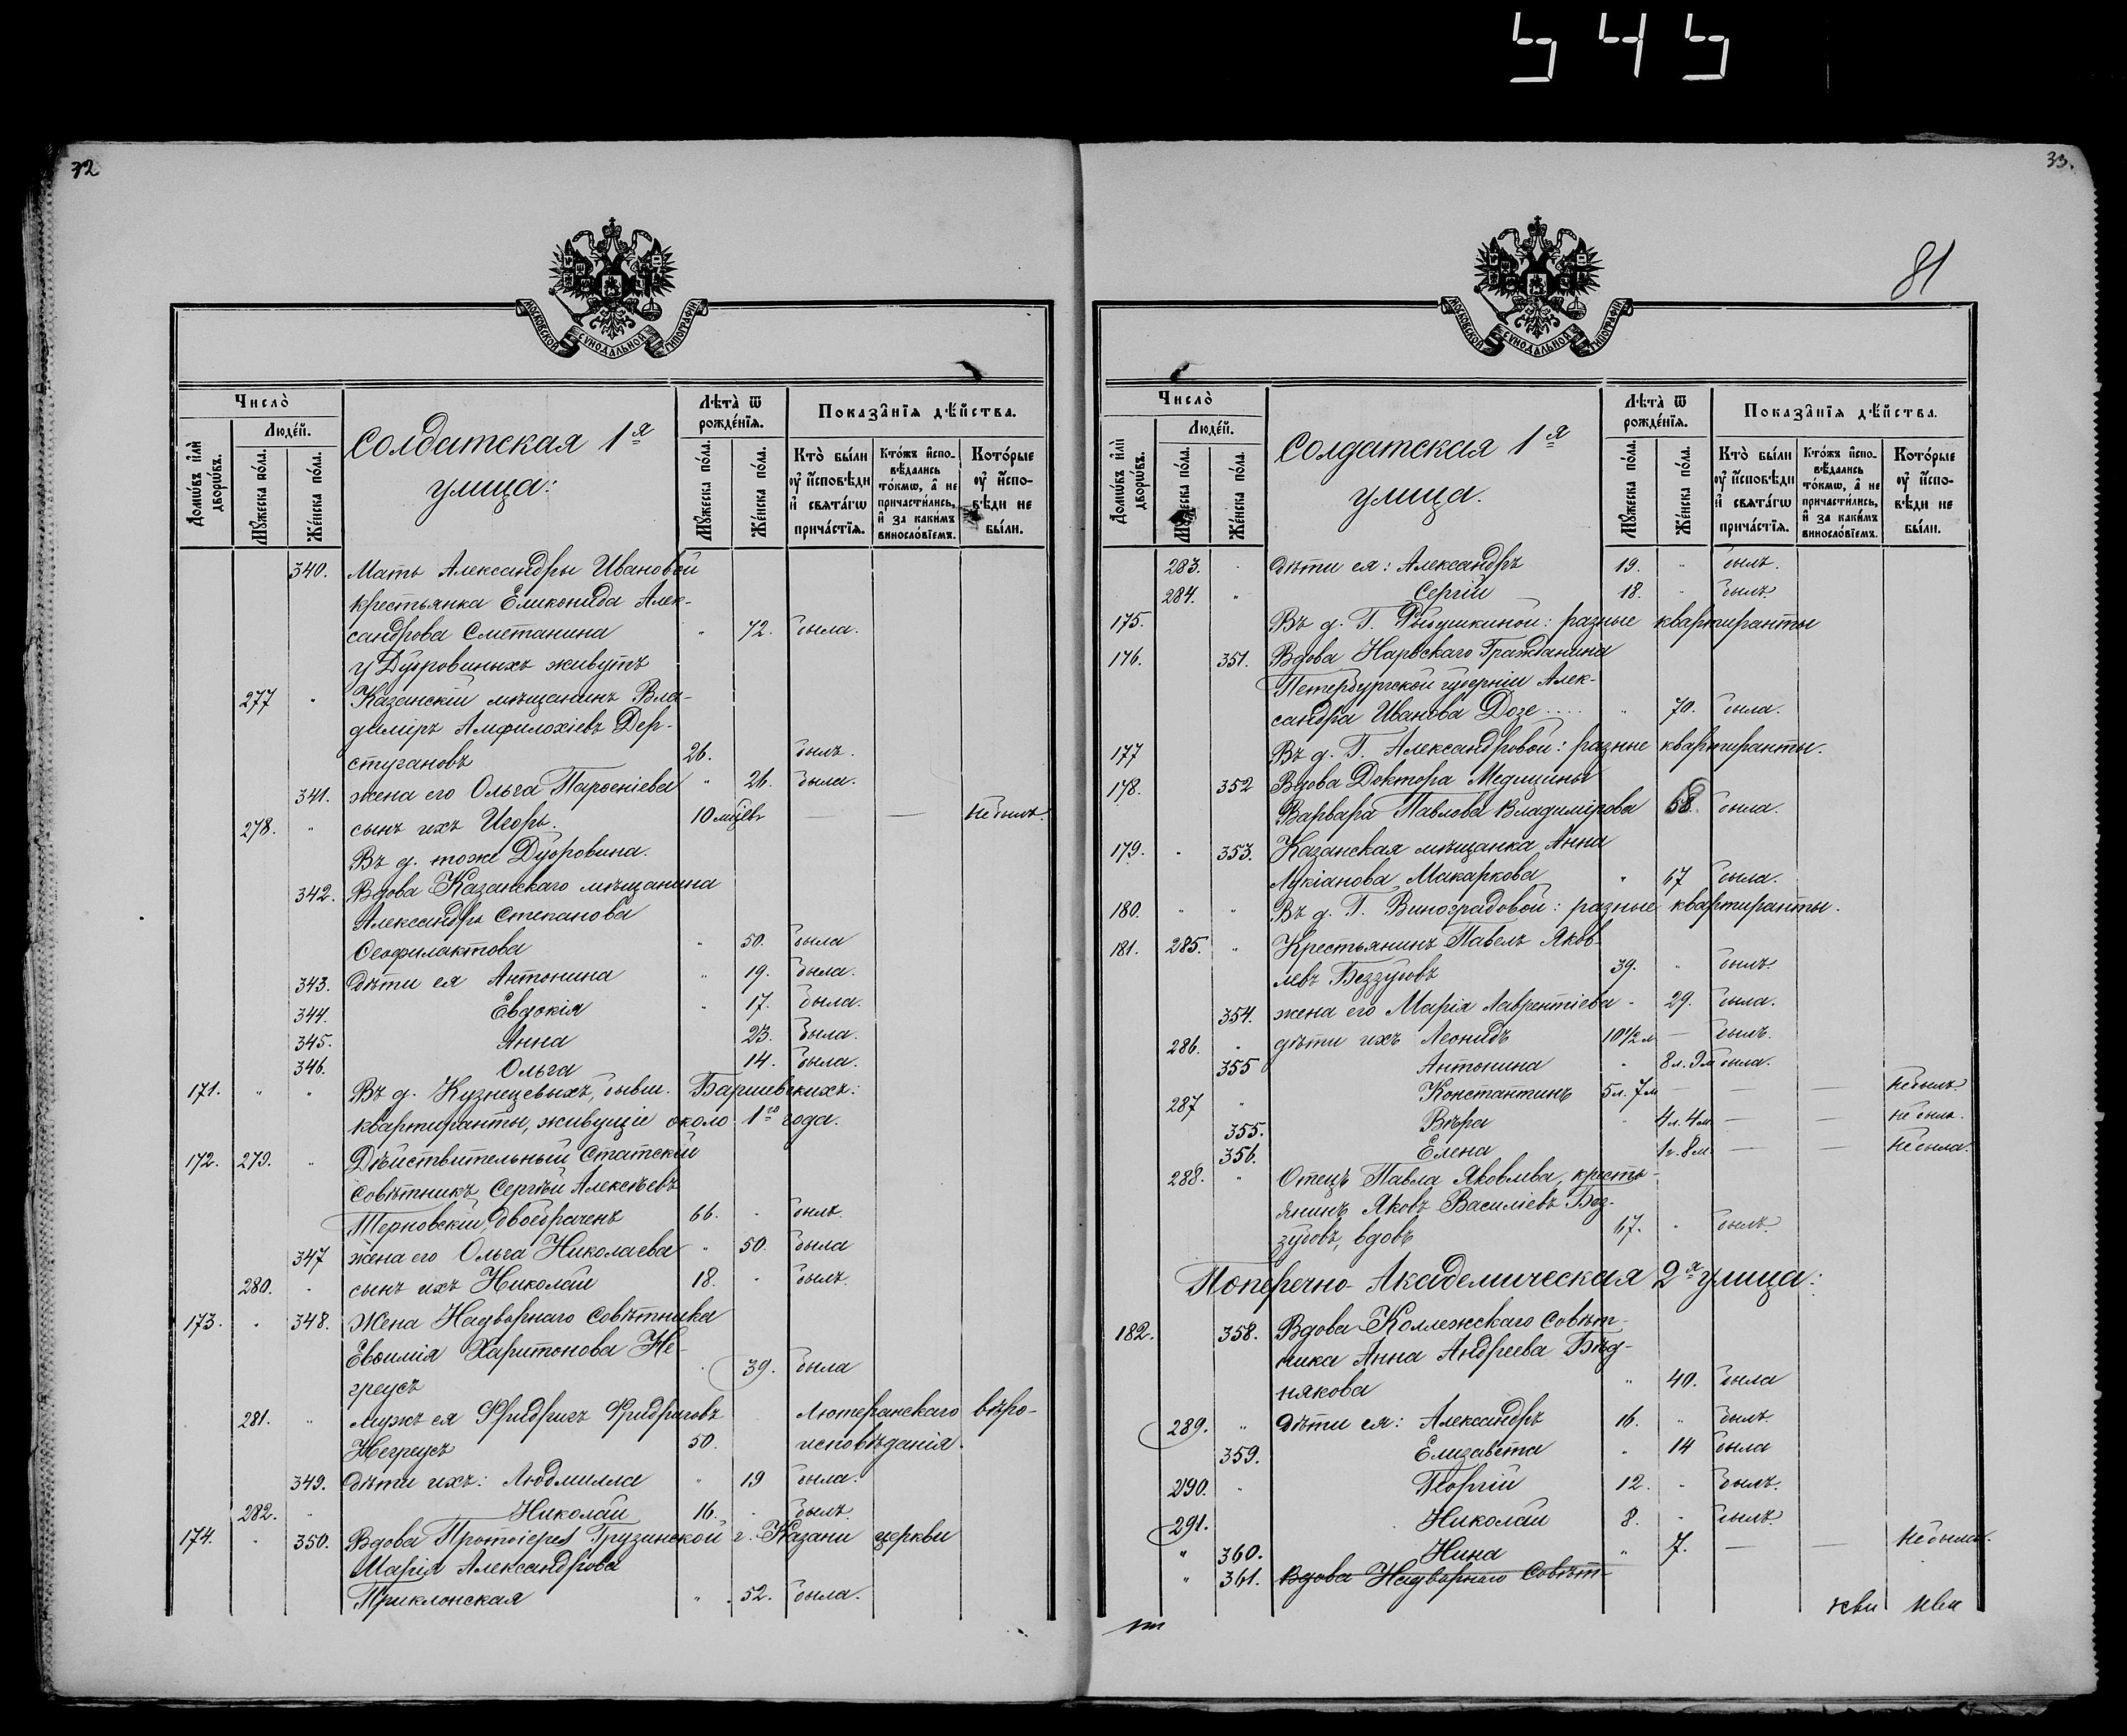 545
32
МОСКОВСКОЙ СѴНОДАЛЬНОЙ ТИПОГРАФІИ
Число̀
Людéй.
Домѡ́въ и҆лѝ дворѡ́въ.
Мꙋ́жеска по́ла.
Же́нска по́ла.
Солдатская 1я
улица:
Лѣта̀ ѿ рожде́нїѧ.
Мꙋ́жеска по́ла.
Же́нска по́ла.
Показа̑нїѧ дѣ́йства.
Кто̀ бы́ли ᲂу҆ и҆сповѣ́ди и҆ свѧта́гѡ прича́стїѧ.
Кто́жъ и҆сповѣ́дались то́кмѡ, а҆ не причасти́лись, и҆ за каки́мъ виносло́вїемъ.
Кото́рые ᲂу҆ и҆сповѣ́ди не бы́ли.
340. Мать Александры Ивановой
крестьянка Еликонида Алек-
сандрова Сметанина " 72. была.
у Дубровиныхъ живутъ
277 " Казанскій мѣщанинъ Вла-
димиръ Амфилохіевъ Дер-
стугановъ 26. былъ.
341. жена его Ольга Парѳеніева " 26. была.
278. " сынъ ихъ Игорь. 10 мѣсяцевъ — — не былъ.
Въ д. тоже Дубровина.
342. Вдова Казанскаго мѣщанина
Александра Степанова
Ѳеофилактова " 50. была
343. Дѣти ея Антонина " 19. была.
344. Евдокія " 17. была.
345. Анна 23. была.
346. Ольга 14. была.
171. " " Въ д. Кузнецевыхъ, бывш. Баршевскихъ:
квартиранты, живущіе около 1го года.
172. 279. " Дѣйствительный Статскій
Совѣтникъ Сергѣй Алексѣевъ
Терновскій, двоебраченъ 66. " былъ
347 жена его Ольга Николаева " 50. была
280. " сынъ ихъ Николай 18. " былъ.
173. " 348. Жена Надворнаго Совѣтника
Евѳимія Харитонова Не-
греусъ " 39. была
281. " мужъ ея Фридригъ Фридриговъ Лютеранскаго вѣро-
Негреусъ 50. исповѣданія.
349. Дѣти ихъ: Людмилла " 19 была.
282. " Николай 16. " былъ
174. " 350. Вдова Протоіерея Грузинской г. Казани церкви
Марія Александрова
Приклонская " 52. была.
33.
81
МОСКОВСКОЙ СѴНОДАЛЬНОЙ ТИПОГРАФІИ
Число̀
Людéй.
Домѡ́въ и҆лѝ дворѡ́въ.
Мꙋ́жеска по́ла.
Же́нска по́ла.
Солдатская 1я
улица.
Лѣта̀ ѿ рожде́нїѧ.
Мꙋ́жеска по́ла.
Же́нска по́ла.
Показа̑нїѧ дѣ́йства.
Кто̀ бы́ли ᲂу҆ и҆сповѣ́ди и҆ свѧта́гѡ прича́стїѧ.
Кто́жъ и҆сповѣ́дались то́кмѡ, а҆ не причасти́лись, и҆ за каки́мъ виносло́вїемъ.
Кото́рые ᲂу҆ и҆сповѣ́ди не бы́ли.
283. " Дѣти ея: Александръ 19. " былъ.
284. " Сергій 18. " былъ
175. Въ д. Г. Рыбушкиной: разные квартиранты
176. 351. Вдова Нарвскаго Гражданина
Петербургской губерніи Алек-
сандра Иванова Дозе..... " 70. была.
177 Въ д. Г. Александровой: разные квартиранты.
178. 352 Вдова Доктора Медицины
Варвара Павлова Владимірова 58. была.
179. " 353. Казанская мѣщанка Анна
Лукіанова Макаркова " 67 была.
180. " " Въ д. Г. Виноградовой: разные квартиранты.
181. 285. " Крестьянинъ Павелъ Яков-
левъ Беззубовъ 39. " былъ.
354. жена его Марія Лаврентіева " 29. была.
286. " дѣти ихъ Леонидъ 10½ л — былъ.
355 Антонина " 8л. 9м была.
287 " Константинъ 5л. 7м — — не былъ.
355. Вѣра " 4л. 4м. — — не была.
356. Елена 1г. 8м. — — не была.
288. " Отецъ Павла Яковлева, кресть-
янинъ Яковъ Василіевъ Без-
зубовъ, вдовъ 67. " былъ
Поперечно-Академическая 2я улица:
182. 358. Вдова Коллежскаго Совѣт-
ника Анна Андреева Бѣд-
някова " 40. была
289. " Дѣти ея: Александръ 16. " былъ.
359. Елизавета " 14 была
290. " Георгій 12. " былъ.
291. Николай 8. " былъ.
" 360. Нина " 7. — — не была.
" 361. Вдова Надворнаго Совѣт-